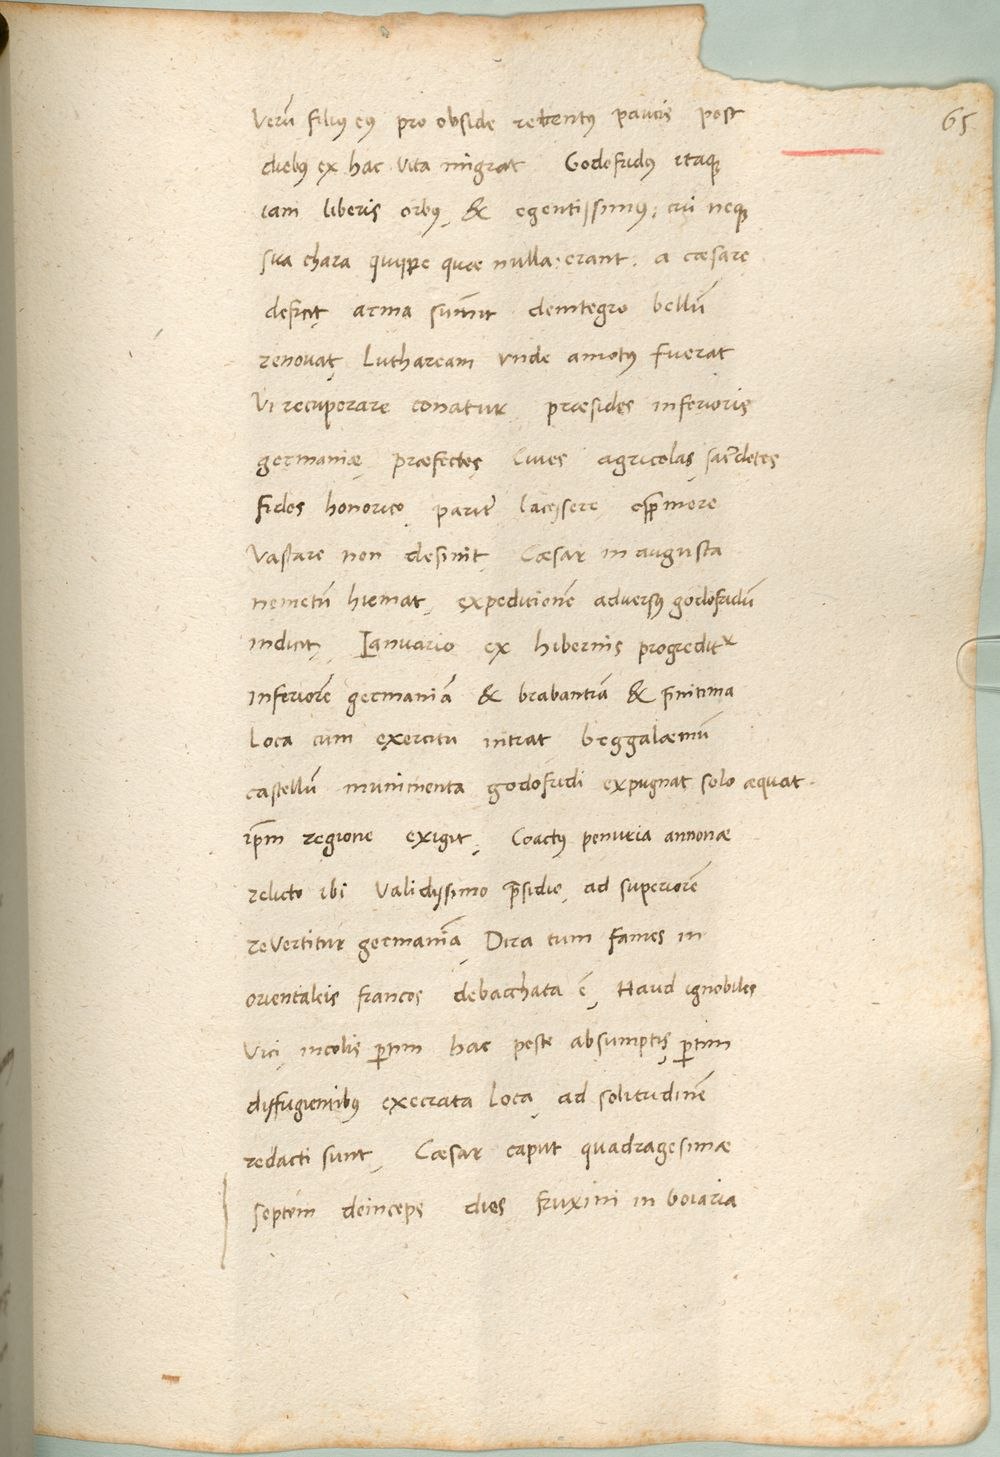 65
Verũ filiꝯ eiꝯ pro obside retentꝯ paucis post
diebꝯ ex hac vita migrat Godefridꝯ itaqꝫ
iam liberis orbꝯ, & egentissimꝯ, cui neqꝫ
sua chara quippe quae nulla erant. a cæsare
deficit, arma sum̃it deintegro bellũ
renovat, Luthaream unde amotꝯ fuerat
Vi recuperare conatur, præsides inferioris
germaniæ, præfectos, Cives agricolas, sac̃detes
fideles honorico, parit̃ lacessere opp̃mere
vastare non desinit, Cæsar in augusta
nemetũ hiemat, expeditionẽ adversꝯ godefridũ
indicit, Ianuario ex hibernis progreditᷣ
inferiorẽ germaniã & brabantiã & p̃nitima
Loca cum exercitu intrat beggalæmũ
castellũ munimenta godofridi expugnat solo æquat.
ip̃m regione exigit, Coactꝯ penuria annonæ
relicto ibi validissimo p̃sidio, ad superiorẽ
revertitur germaniã, Dira tum fames in
orientaleis francos debacchata ẽ, Haud ignobiles
Vici, incolis ꝑtim hac peste absumptis, ꝑtim
diffugientibꝯ execrata loca, ad solitudinẽ
redacti sunt, Cæsar caput quadragesimæ
septem deinceps dies fruxini in boiaria